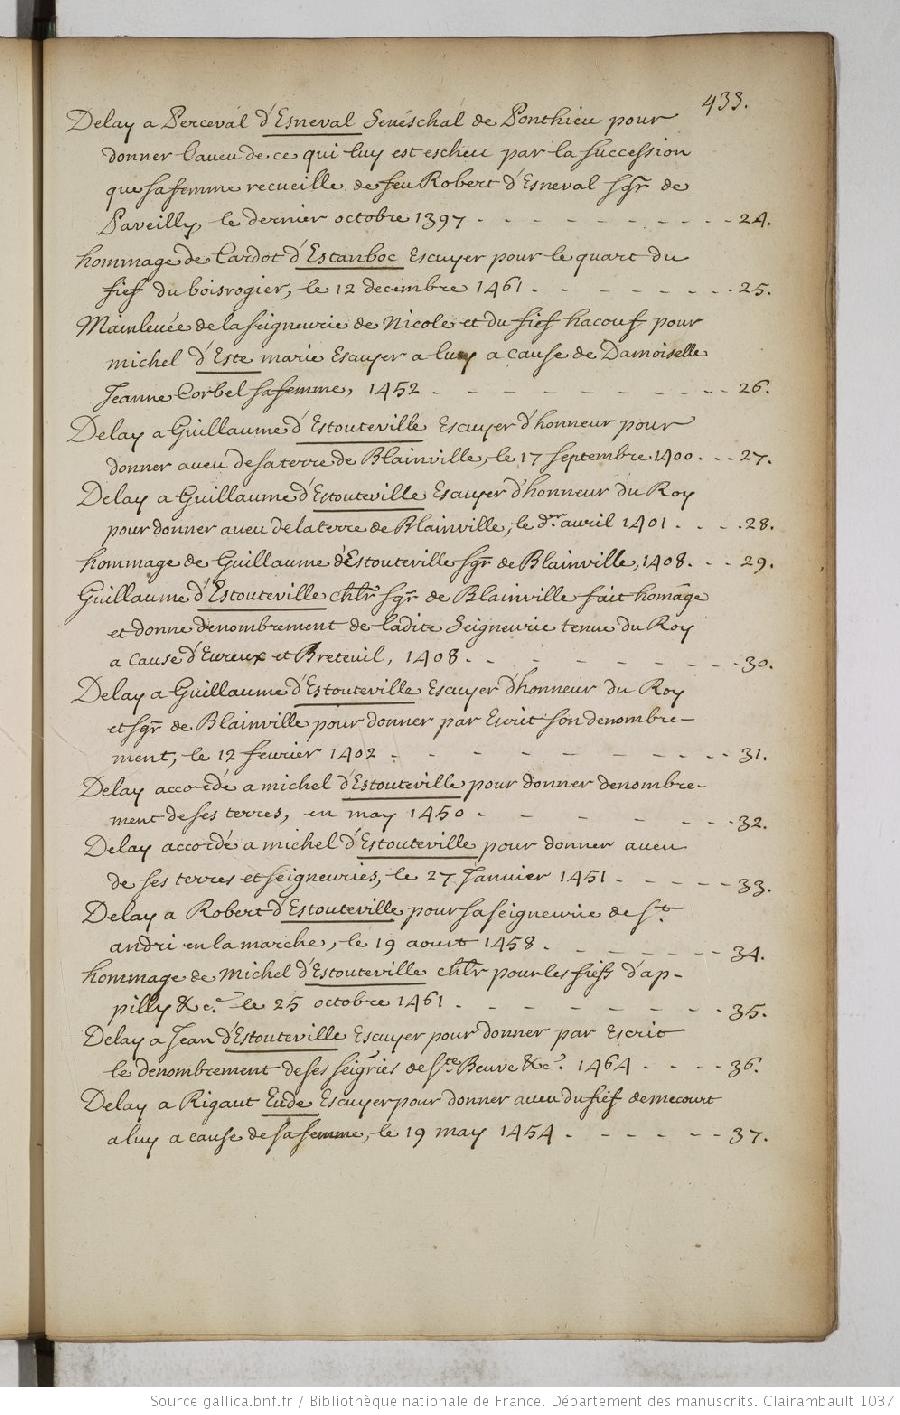 433.
Delay a Perceval d'Esneval Seneschal de Ponthieu pour
donner l'aveu de ce qui luy est escheu par la succession
que sa femme recueille de feu Robert d'Esneval sgr. de
Paveilly, le dernier octobre 1397 - - - - - - - - - 24.
hommage de Cardot d'Estanboc Escuyer pour le quart du
fief du boisrogier, le 12 decembre 1461. - - - - - - - 25.
Mainlevée de la seigneurie de Nicole et du fief hacouf pour
michel d'Este marie Escuyer a luy a cause de Damoiselle
Jeanne Corbel sa femme, 1452 - - - - - - - - - - 26.
Delay a Guillaume d'Estouteville Escuyer d'honneur pour
donner aveu de sa terre de Blainville, le 17 septembre 1400. - - 27.
Delay a Guillaume d'Estouteville Escuyer d'honneur du Roy
pour donner aveu de la terre de Blainville, le dnr avril 1401. - - - 28.
hommage de Guillaume d'Estouteville sgr. de Blainville, 1408. - - 29.
Guillaume d'Estouteville chlr sgr. de Blainville fait homage
et donne denombrement de ladite Seigneurie tenue du Roy
a cause d'Evreux et Breteuil, 1408. - - - - - - - - 30.
Delay a Guillaume d'Estouteville Escuyer d'honneur du Roy
et sgr. de Blainville pour donner par Escrit son denombre-
ment, le 12 fevrier 1402. - - - - - - - - - 31.
Delay accordé a michel d'Estouteville pour donner denombre-
ment de ses terres, en may 1450. - - - - - - - 32.
Delay accordé a michel d'Estouteville pour donner aveu
de ses terres et seigneuries, le 27 Janvier 1451. - - - - - 33.
Delay a Robert d'Estouteville pour sa seigneurie de St.
andri en la marche, le 19 aoust 1458. - - - - - - 34.
hommage de Michel d'Estouteville chlr pour les fiefs d'ap-
pilly &c. le 25 octobre 1461. - - - - - - - - 35.
Delay a Jean d'Estouteville Escuyer pour donner par Escrit
le denombrement de ses seigries de Ste Beuve &c. 1464. - - - - 36.
Delay a Rigaut Eude Escuyer pour donner aveu du fief de mecourt
a luy a cause de sa femme, le 19 may 1454. - - - - - - 37.
Source gallica.bnf.fr / Bibliothèque nationale de France. Département des manuscrits. Clairambault 1037